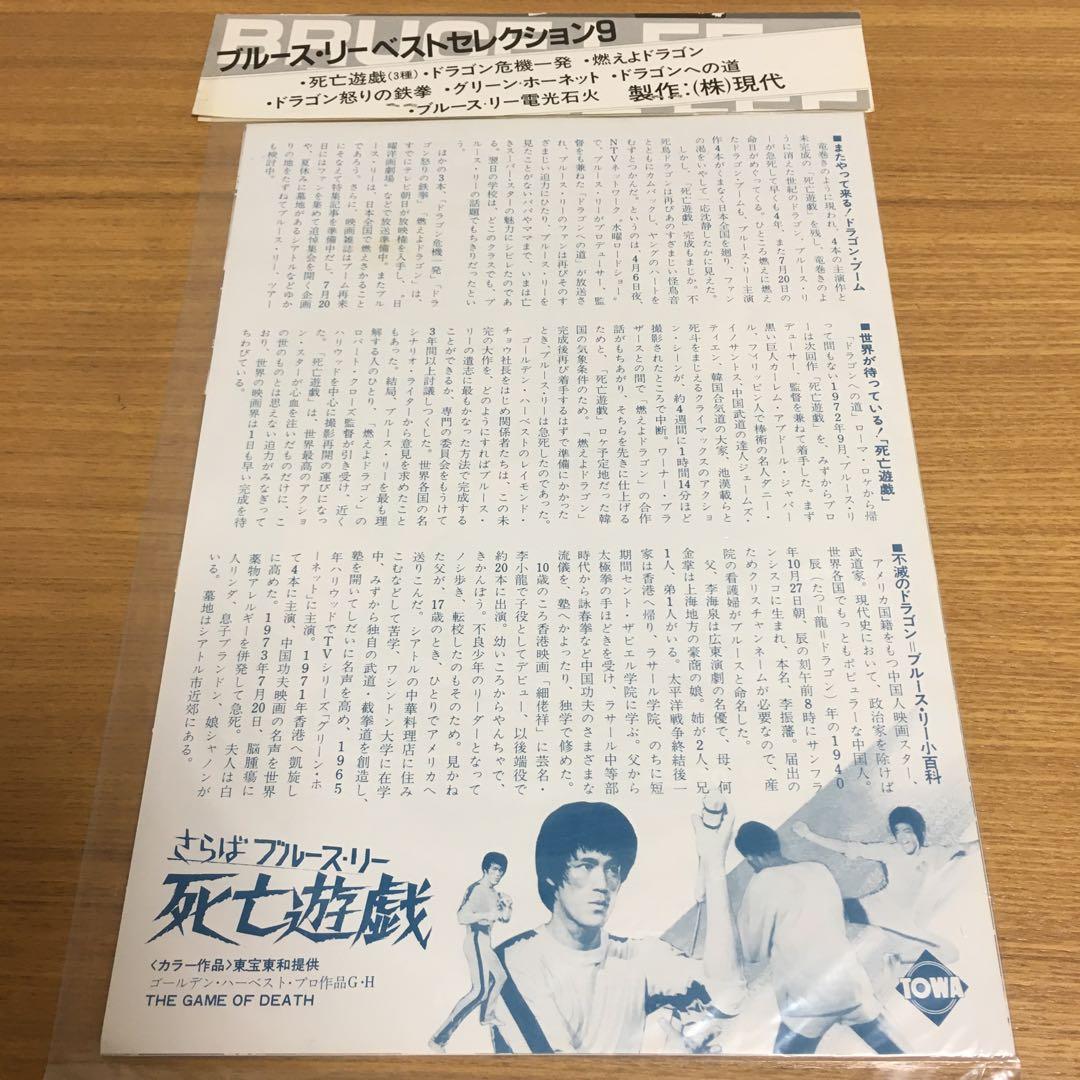 BRUCE LEE
ブルース・リーベストセレクション9
・死亡遊戯(3種)・ドラゴン危機一発・燃えよドラゴン
・ドラゴン怒りの鉄拳・グリーン・ホーネット・ドラゴンへの道
・ブルース・リー電光石火 製作:(株)現代
■またやって来る!ドラゴン・ブーム
竜巻きのように現われ、4本の主演作と
未完成の「死亡遊戯」を残し、竜巻きのよ
うに消えた世紀のドラゴン、ブルース・リ
ーが急死して早くも4年、また7月20日の
命日がめぐってくる。ひところ燃えに燃え
たドラゴン・ブームも、ブルース・リー主演
作4本がくまなく日本全国を廻り、ファン
の渇をいやして一応沈静したかに見えた。
しかし、「死亡遊戯」完成もまじか。不
死鳥ドラゴンは再びあのすさまじい怪鳥音
とともにカムバックし、ヤングのハートを
むずとつかんだ。というのは、4月6日夜、
NTVネットワーク〝水曜ロードショー〟
で、ブルース・リーがプロデューサー、監
督をも兼ねた「ドラゴンへの道」が放送さ
れ、ブルース・リーのファンは再びそのす
さまじい迫力にひたり、ブルース・リーを
見たことがないパパやママまで、いまは亡
きスーパー・スターの魅力にシビレたのであ
る。翌日の学校は、どこのクラスでも、ブ
ルース・リーの話題でもちきりだったとい
う。
ほかの3本、「ドラゴン危機一発」「ドラ
ゴン怒りの鉄拳」「燃えよドラゴン」は、
すでにテレビ朝日が放映権を入手し、〝日
曜洋画劇場〟などで放送準備中。またブル
ース・リーは、日本全国で燃えさかること
であろう。さらに、映画雑誌はブーム再来
にそなえて特集記事を準備中だし、7月20
日にはファンを集めて追悼集会を開く企画
や、夏休みに墓地があるシアトルなどゆか
りの地をたずねてブルース・リー、ツアー
も検討中。
■世界が待っている!「死亡遊戯」
「ドラゴンへの道」ローマ・ロケから帰
って間もない1972年9月、ブルース・リ
ーは次回作「死亡遊戯」を、みずからプロ
デューサー、監督を兼ねて着手した。まず
黒い巨人カリーム・アブドール・ジャバー
ル、フィリッピン人で棒術の名人ダニー・
イノサントス、中国武道の達人ジェームズ・
ティエン、韓国合気道の大家、池漢載らと
死斗をまじえるクライマックスのアクショ
ン・シーンが、約4週間に1時間14分ほど
撮影されたところで中断。ワーナー・ブラ
ザースとの間で「燃えよドラゴン」の合作
話がもちあがり、そちらを先きに仕上げる
ためと、「死亡遊戯」ロケ予定地だった韓
国の気象条件のため。「燃えよドラゴン」
完成後再び着手するはずで準備にかかった
とき、ブルース・リーは急死したのであった。
ゴールデン・ハーベストのレイモンド・
チョウ社長をはじめ関係者たちは、この未
完の大作を、どのようにすればブルース・
リーの遺志に最もかなった方法で完成する
ことができるか、専門の委員会をもうけて
3年間以上討議しつくした。世界各国の名
シナリオ・ライターから意見を求めたこと
もあった。結局、ブルース・リーを最も理
解する人のひとり、「燃えよドラゴン」の
ロバート・クローズ監督が引き受け、近く
ハリウッドを中心に撮影再開の運びになっ
た。「死亡遊戯」は、世界最高のアクショ
ン・スターが心血を注いだものだけに、こ
の世のものとは思えない迫力がみなぎって
おり、世界の映画界は1日も早い完成を待
ちわびている。
■不滅のドラゴン=ブルース・リー小百科
アメリカ国籍をもつ中国人映画スター、
武道家。現代史において、政治家を除けば
世界各国でもっともポピュラーな中国人。
辰(たつ=龍=ドラゴン)年の1940
年10月27日朝、辰の刻午前8時にサンフラ
ンシスコに生まれ、本名、李振藩。届出の
ためクリスチャンネームが必要なので、産
院の看護婦がブルースと命名した。
父、李海泉は広東演劇の名優で、母、何
金掌は上海地方の豪商の娘。姉が2人、兄
1人、弟1人がいる。太平洋戦争終結後一
家は香港へ帰り、ラサール学院、のちに短
期間セント・ザビエル学院に学ぶ。父から
太極拳の手ほどきを受け、ラサール中等部
時代から詠春拳など中国功夫のさまざまな
流儀を、塾へかよったり、独学で修めた。
10歳のころ香港映画「細佬祥」に芸名・
李小龍で子役としてデビュー、以後端役で
約20本に出演。幼いころからやんちゃで、
きかんぼう。不良少年のリーダーとなって
ノシ歩き、転校したのもそのため。見かね
た父が、17歳のとき、ひとりでアメリカへ
送りこんだ。シアトルの中華料理店に住み
こむなどして苦学、ワシントン大学に在学
中、みずから独自の武道・截拳道を創造し、
塾を開いてしだいに名声を高め、1965
年ハリウッドでTVシリーズ「グリーン・ホ
ーネット」に主演。1971年香港へ凱旋し
て4本に主演、中国功夫映画の名声を世界
に高めた。1973年7月20日、脳腫瘍に
薬物アレルギーを併発して急死。夫人は白
人リンダ、息子ブランドン、娘シャノンが
いる。墓地はシアトル市近郊にある。
さらば ブルース・リー
死亡遊戯
〈カラー作品〉東宝東和提供
ゴールデン・ハーベスト・プロ作品G・H
THE GAME OF DEATH
TOWA